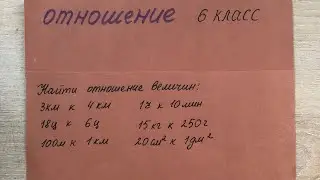 отношение 6 класс
Найти отношение величин:
3км к 4км 1ч к 10мин
18ц к 6ц 15кг к 250г
100м к 1км 20см² к 1дм²